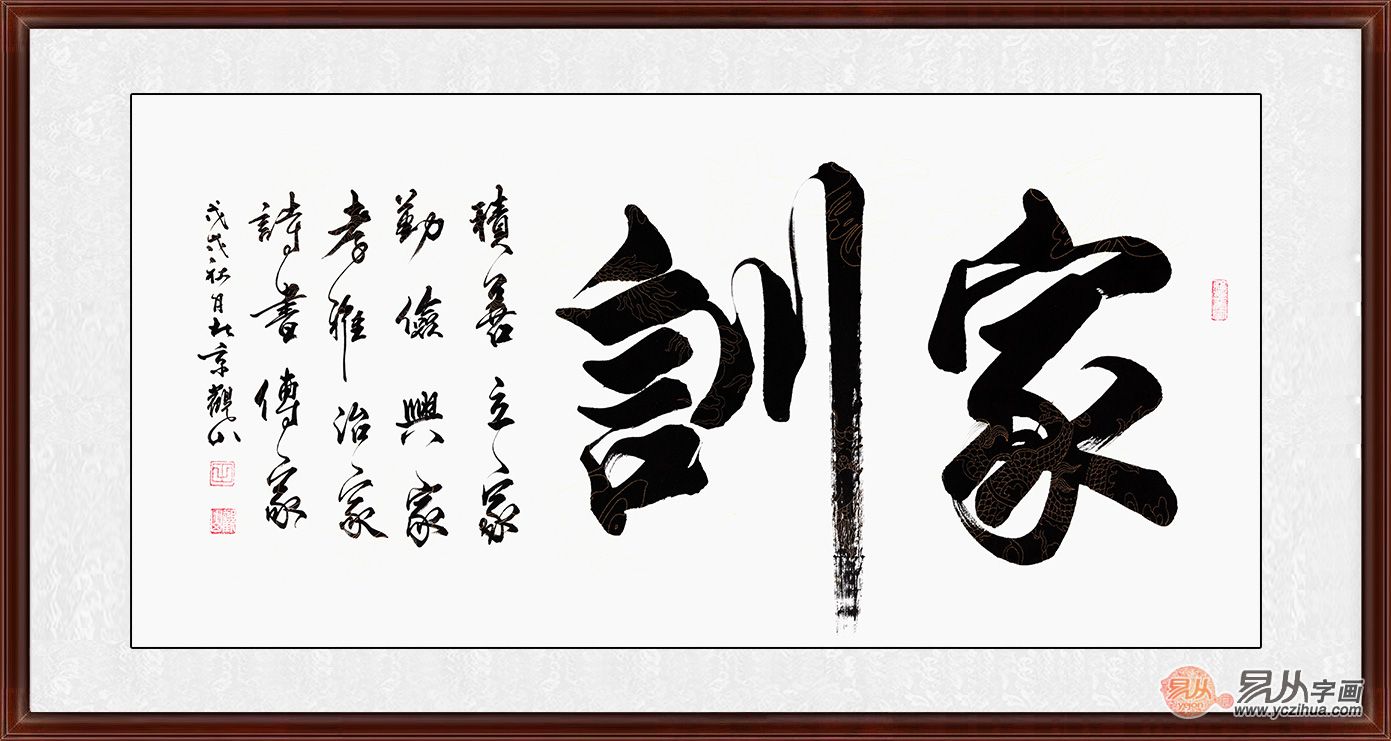 家訓
積善立家
勤儉興家
孝雅治家
詩書傳家
戊戌秋月北京觀山
易从
yejon
易从字画
www.yczihua.com